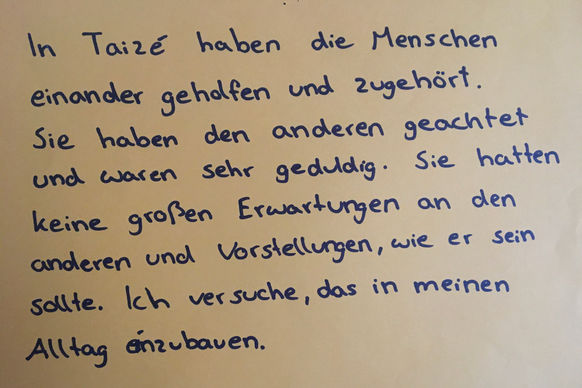 In Taizé haben die Menschen
einander geholfen und zugehört.
Sie haben den anderen geachtet
und waren sehr geduldig. Sie hatten
keine großen Erwartungen an den
anderen und Vorstellungen, wie er sein
sollte. Ich versuche, das in meinen
Alltag einzubauen.